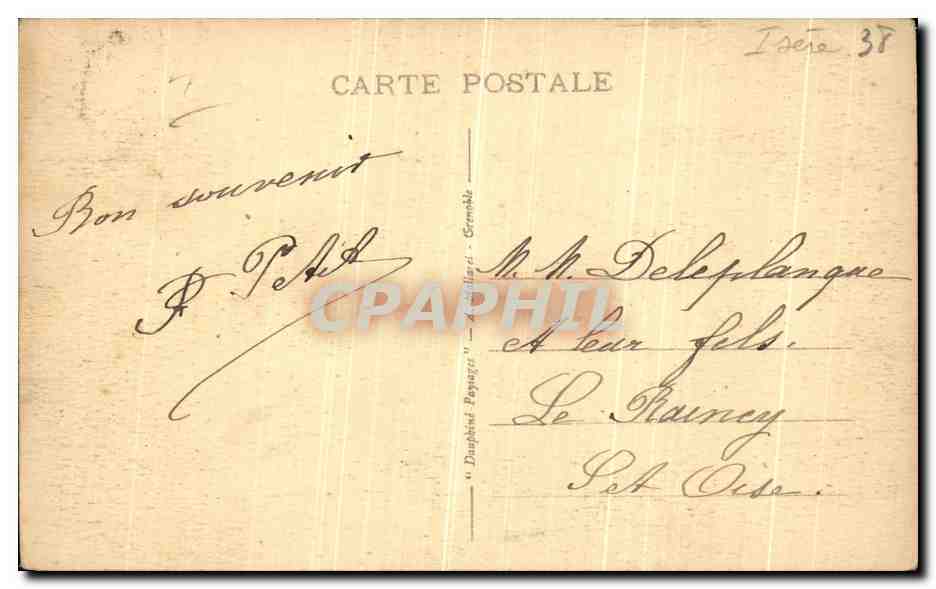 Isère 38
CARTE POSTALE
Bon souvenir
P Petit
"Dauphiné Paysages" — A. Mollaret - Grenoble
M. M. Deleplanque
et leur fils.
Le Raincy
S et Oise.
CPAPHIL